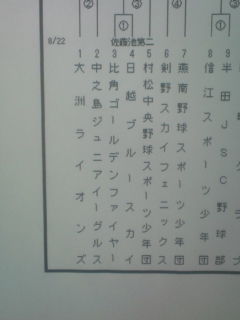 ② ③ ④
① ①
8/22 佐藤池第二
1 大洲ライオンズ
2 中之島ジュニアイーグルス
3 比角ゴールデンファイヤー
4 日越ブルースカイ
5 村松中央野球スポーツ少年団
6 剣野スカイフェニックス
7 燕南野球スポーツ少年団
8 信江スポーツ少年団
9 半田JSC野球部